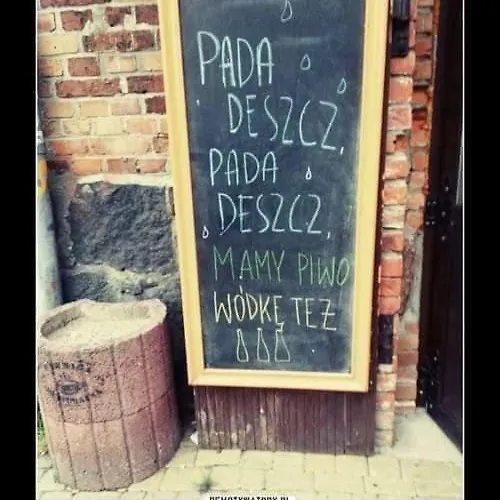 PADA
DESZCZ,
PADA
DESZCZ,
MAMY PIWO
WÓDKĘ TEŻ